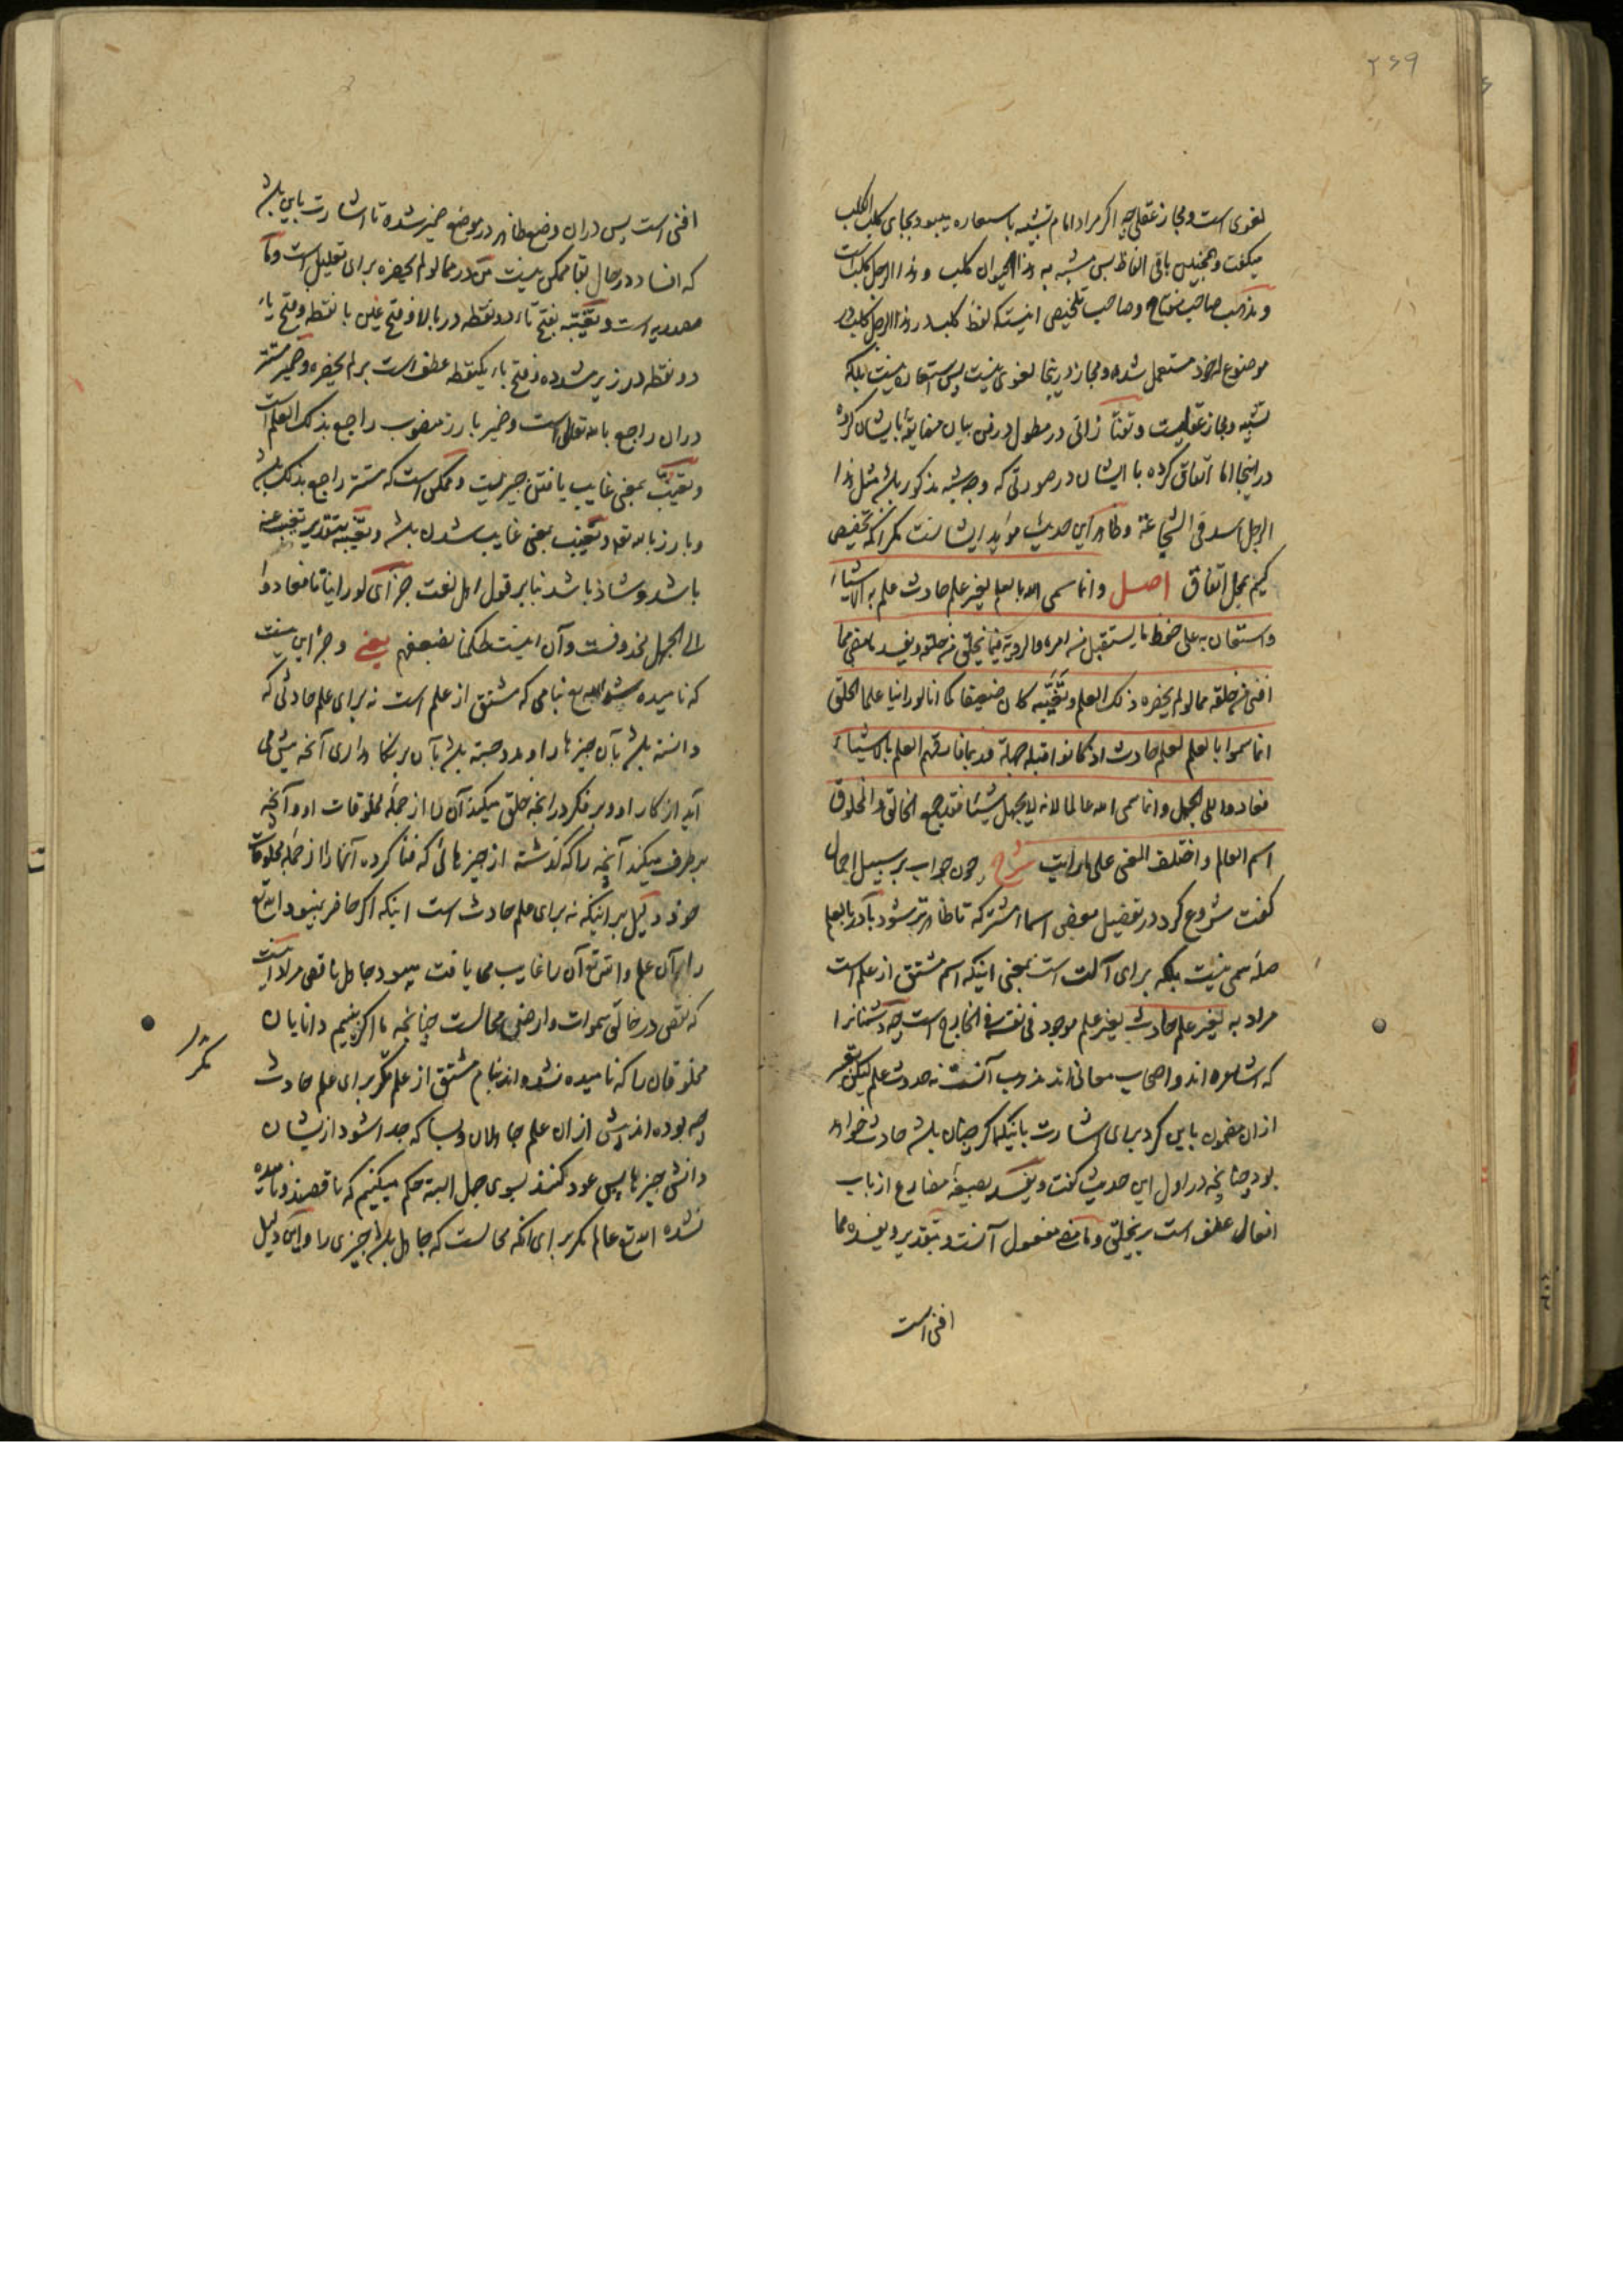 ۲۶۹
لغوی است و مجاز عقلی چه اکر مراد امام تشبیه یا استعاره میبود بجای کلب الکلب
میکفت و همچنین باقی الفاظ پس مشبه به هذا الحیوان کلب و هذا الرجل کلب است
و مذهب صاحب مفتاح و صاحب تلخیص اینست که لفظ کلب در هذا الرجل کلب در
موضوع له خود مستعمل شده و مجاز در ینجا لغوی نیست پس استعاره نیست بلکه
تشبیه و مجاز عقلیست و تفتازانی در مطول در فن بیان مضایقه با ایشان کرده
در اینجا اما اتفاق کرده با ایشان در صورتی که وجه شبه مذکور باشد مثل هذا
الرجل اسد فی الشجاعة و ظاهر این حدیث مؤید ایشانست مکر آنکه تخصیص
کنیم بمحل اتفاق اصل وانما سمی الله بالعلم بغیر علم حادث علم به الاشیاء
واستعان به علی حفظ ما یستقبل من امره والرویة فیما یخلق من خلقه ویفسد ما مضی مما
افنی من خلقه مما لو لم یحضره ذلک العلم وتغیّبه کان ضعیفا کما انا لو راینا علماء الخلق
انما سموا بالعلم لعلم حادث اذ کانوا قبله جهلة وربما فارقهم العلم بالاشیاء
فعادوا الی الجهل وانما سمی الله عالما لانه لا یجهل شیئا فقد جمع الخالق والمخلوق
اسم العالم واختلف المعنی علی ما رایت شرح چون جواب بر سبیل اجمال
کفت شروع کرد در تفصیل بعضی اسماء مشترکه تا ظاهرتر شود با در بالعلم
صلهٔ سمی نیست بلکه برای آلت است بمعنی اینکه اسم مشتق از علم است
مراد به بغیر علم حادث بغیر علم موجود فی نفسه فی الخارج است چه دشمنانرا
که اشاعره اند و اصحاب معانی اند مذهب آنست نه حدوث علم لیکن تعبیر
ازان مضمون باین کرد برای اشارت باینکه اکر چنان باشد حادث خواهد
بود چنانچه در اول این حدیث کفت ویفسد بصیغهٔ مضارع از باب
افعال عطف است بر یخلق و ما مضی مفعول آنست و بتقدیر ویفسده مما
افنی است
افنی است پس دران وضع ظاهر در موضع ضمیر شده تا اشارت باین باشد
که افساد در حال بقا ممکن نیست من در مما لو لم یحضره برای تعلیل است و ما
مصدریه است و تغیّبه بفتح تاء دو نقطه در بالا و فتح غین با نقطه و فتح یاء
دو نقطه در زیر مشدده و فتح باء یکنقطه عطف است بر لم یحضره و ضمیر مستتر
دران راجع بالله تعالی است و ضمیر بارز منصوب راجع بذلک العلم است
و تغیّب بمعنی غایب یافتن چیزیست و ممکن است که مستتر راجع بذلک باشد
و بارز بالله تعه و تغیّب بمعنی غایب شدن باشد و تغیّبه بتقدیر تغیب عنه
باشد و شاذ باشد بنابر قول اهل لغت جزای لو راینا تا فعادوا
الی الجهل محذوفست و آن اینست لحکمنا بضعفهم یعنی و جز این نیست
که نامیده شد الله تع بنامی که مشتق از علم است نه برای علم حادثی که
دانسته باشد بآن چیزها را و مدد جسته باشد بآن بر نکاه داری آنچه پیش می
آید از کار او و بر فکر در آنچه خلق میکند آن را از جمله مخلوقات او و آنچه
برطرف میکند آنچه را که کذشته از چیزهائی که فنا کرده آنها را از جمله مخلوقات
خود دلیل بر اینکه نه برای علم حادث است اینکه اکر حاضر نمیبود الله تع
را آن علم و الله تع آن را غایب می یافت میبود جاهل ناقص مراد اینست
که نقص در خالق سموات و ارضین محالست چنانچه ما اکر بینیم دانایان
مخلوقان را که نامیده نشده اند بنام مشتق از علم مکر برای علم حادث
چه بوده اند پیش ازان علم جاهلان و بسا که جدا شود از ایشان
دانش چیزها پس عود کنند بسوی جهل البته حکم میکنیم که ناقصند و نامیده
نشده الله تع عالم مکر برای آنکه محالست که جاهل باشد چیزی را و این دلیل